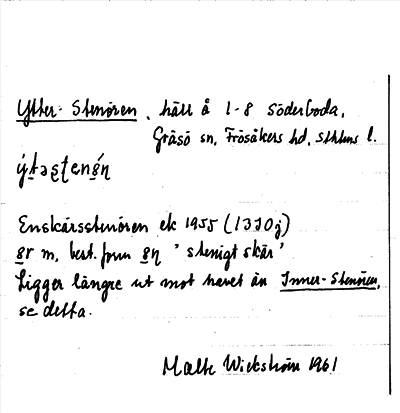 Ytter-Stenören, häll å 1-8 Söderboda,
Gräsö sn, Frösåkers hd, Sthlms l.
Enskärsstenören ek 1955 (13I0j)
m, best. form " stenigt skär "
Ligger längre ut mot havet än Inner-Stenören,
se detta.
Malte Wickström 1961